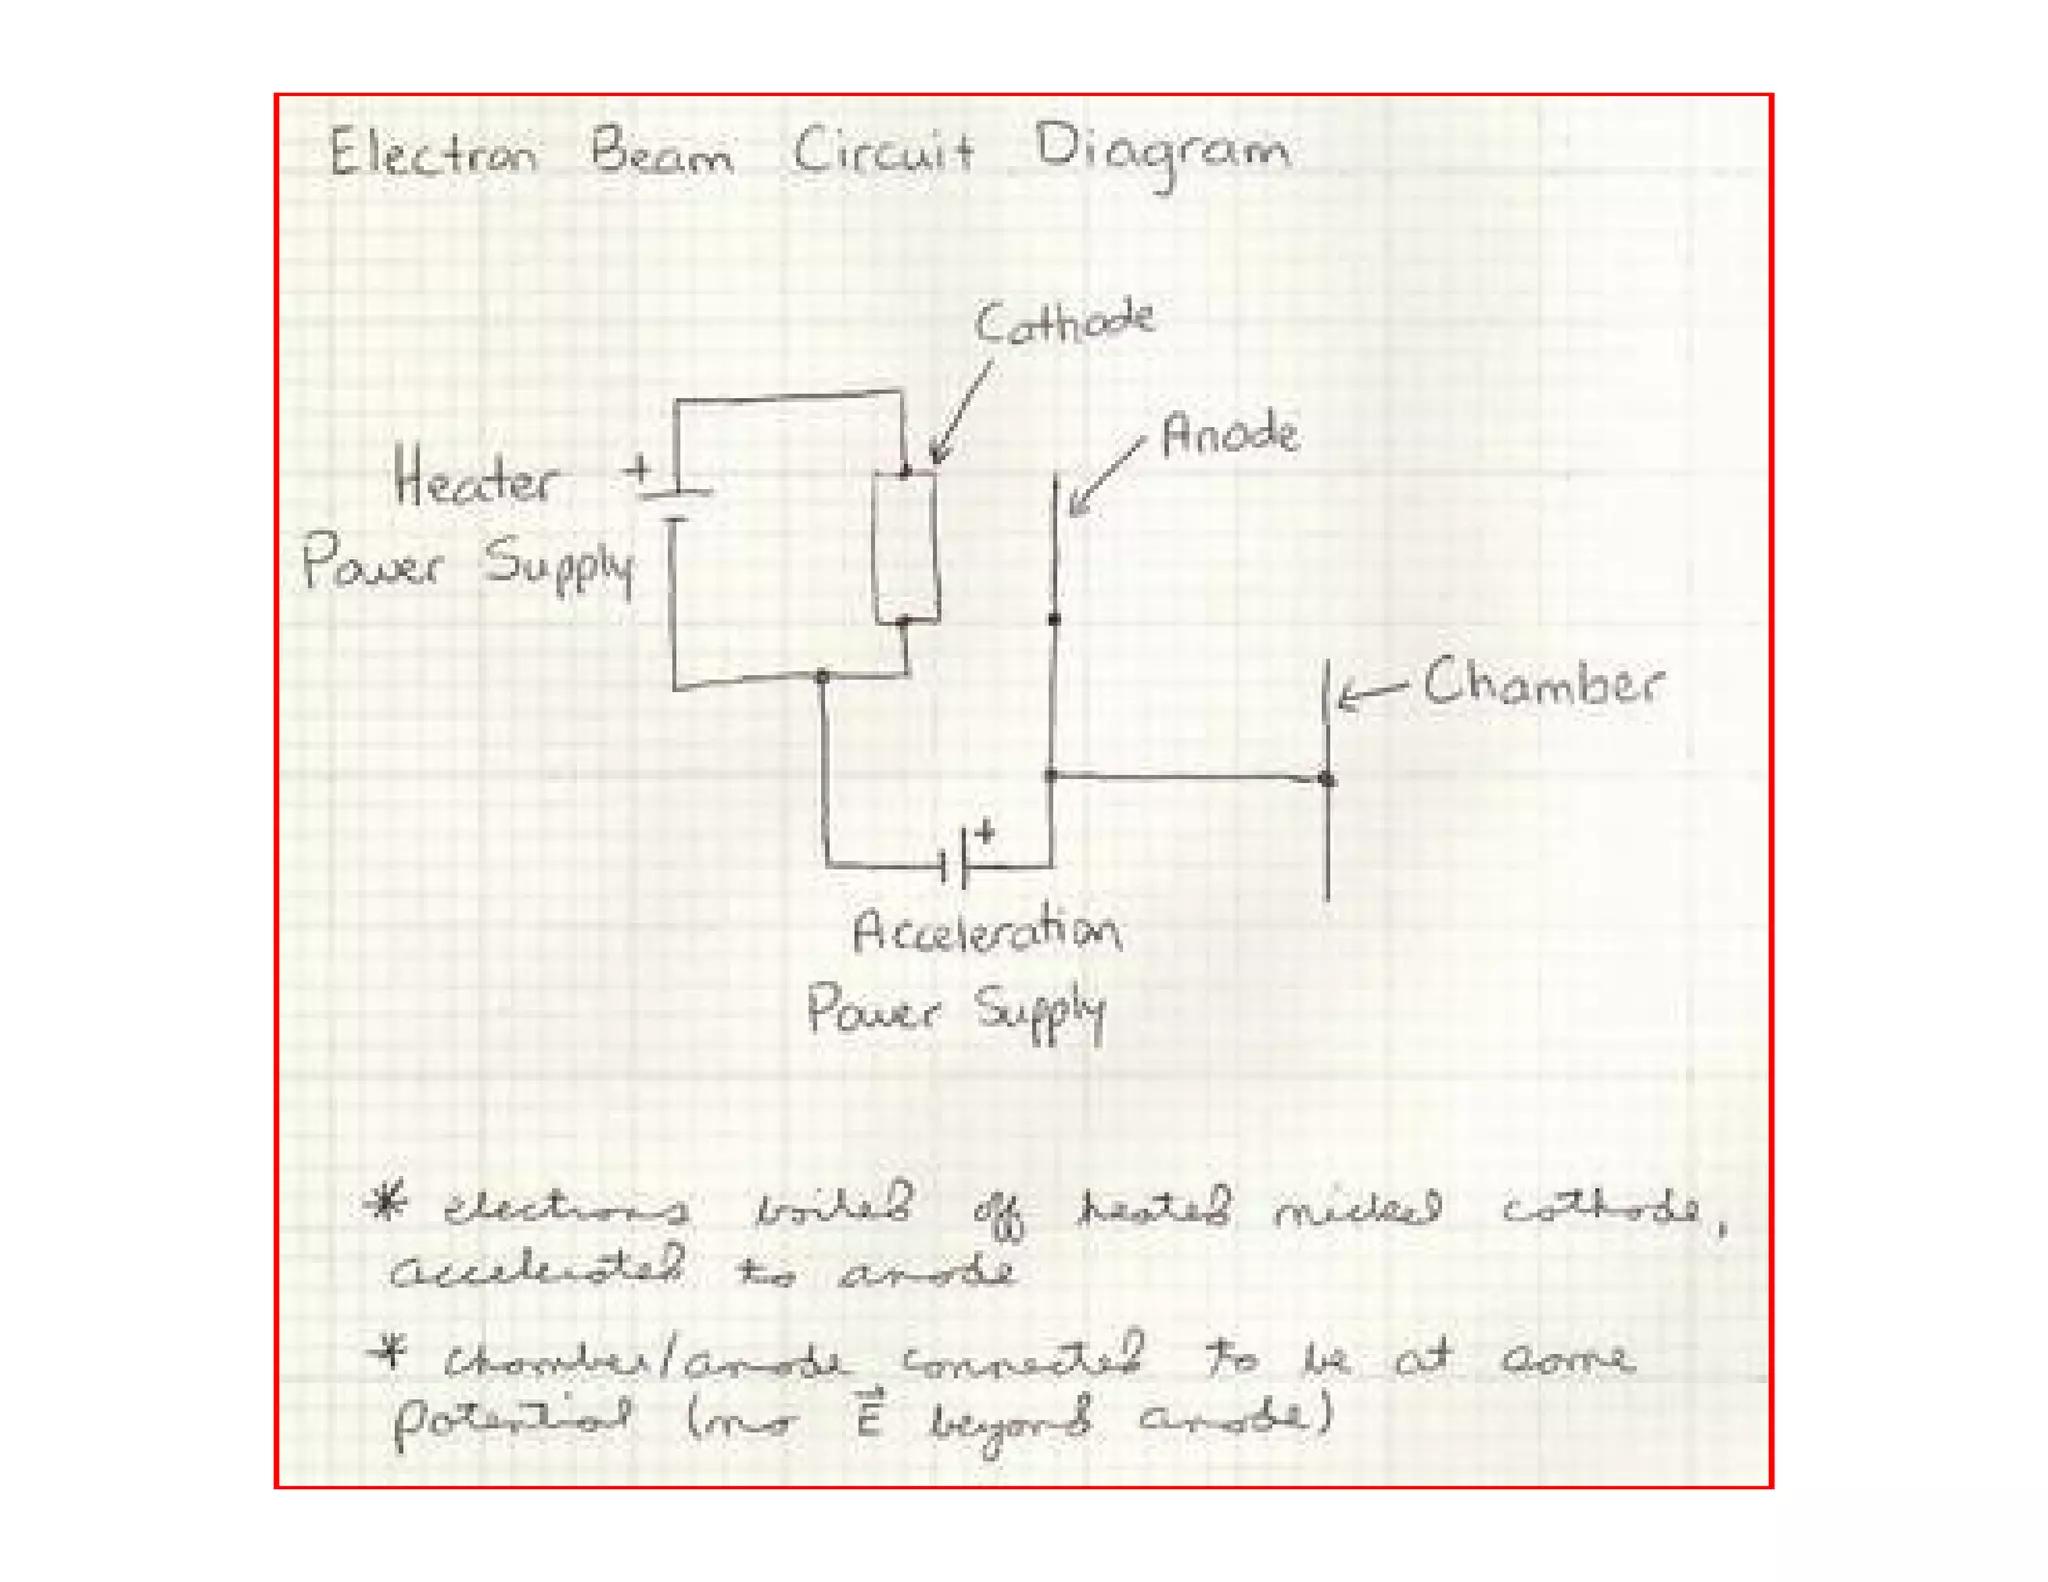 Electron Beam Circuit Diagram
Cathode
Anode
Heater +
Power Supply
Chamber
+
Acceleration
Power Supply
* electrons boiled off heated nickel cathode,
accelerated to anode
* chamber/anode connected to be at same
potential (no E⃗ beyond anode)